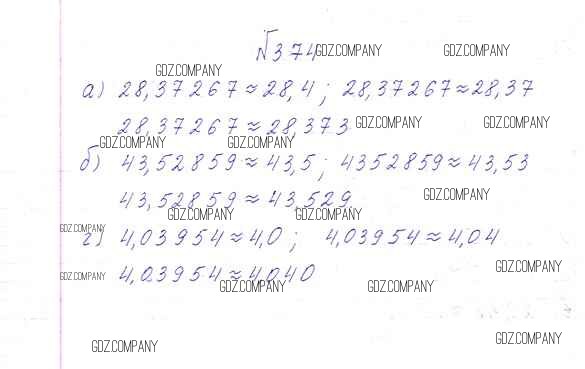 №374 GDZ.COMPANY GDZ.COMPANY
GDZ.COMPANY
а) 28,37267≈28,4; 28,37267≈28,37
28,37267≈28,373 GDZ.COMPANY GDZ.COMPANY
GDZ.COMPANY GDZ.COMPANY
б) 43,52859≈43,5; 4352859≈43,53
43,52859≈43,529 GDZ.COMPANY
GDZ.COMPANY GDZ.COMPANY
GDZ.COMPANY
г) 4,03954≈4,0; 4,03954≈4,04
GDZ.COMPANY 4,03954≈4,040 GDZ.COMPANY
GDZ.COMPANY GDZ.COMPANY
GDZ.COMPANY GDZ.COMPANY